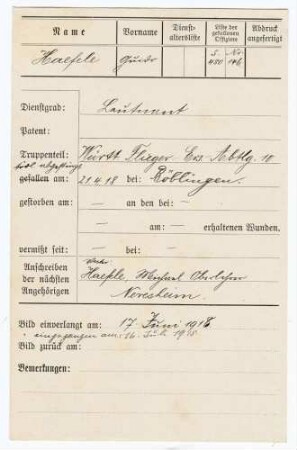 Name Vorname Dienst- altersliste Liste der gefallenen Offiziere Abdruck angefertigt
S. Nr.
Haefele Guido 480 146
Dienstgrad: Leutnant
Patent:
Truppenteil: Württ. Flieger Ers. Abtlg. 10
tödl. abgestürzt
gefallen am: 21.4.18 bei: Böblingen.
gestorben am: — an den bei: —
— am: — erhaltenen Wunden.
vermißt seit: — bei: —
Anschreiben der nächsten Angehörigen
Vater
Haefele, Oberlehrer
Neresheim.
Bild einverlangt am: 17. Juni 1918
" eingegangen am: 16. Juli 1918
Bild zurück am:
Bemerkungen: